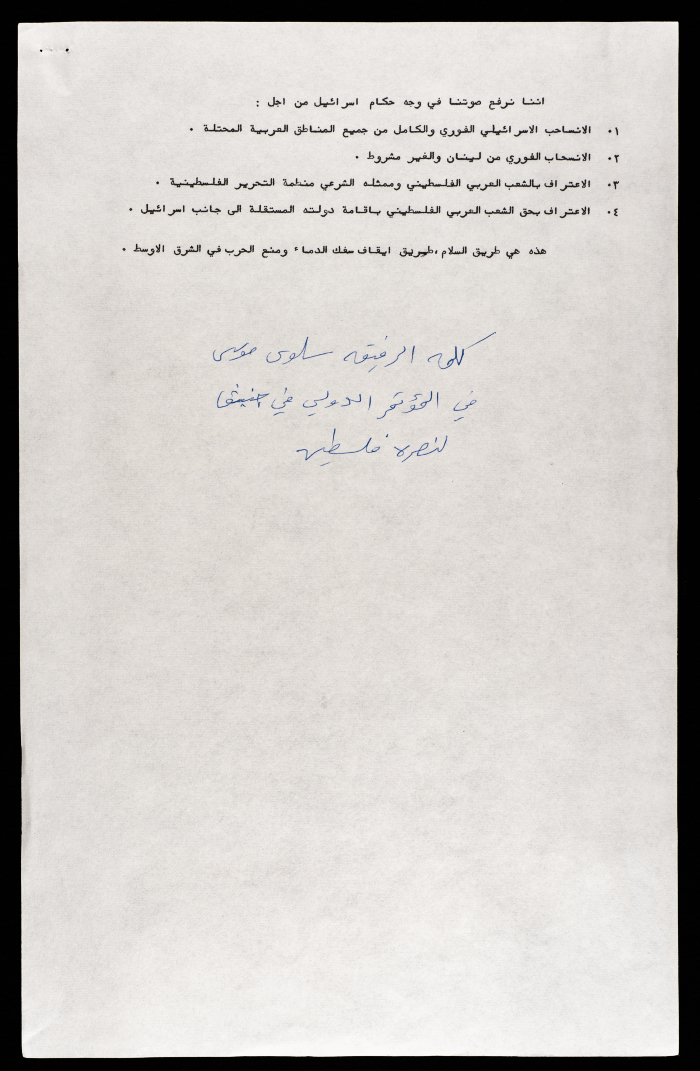 اننا نرفع صوتنا في وجه حكام اسرائيل من اجل :
١٠ الانساحب الاسرائيلي الفوري والكامل من جميع المناطق العربية المحتلة ٠
٢٠ الانسحاب الفوري من لبنان والغير مشروط ٠
٣٠ الاعتراف بالشعب العربي الفلسطيني وممثله الشرعي منظمة التحرير الفلسطينية ٠
٤٠ الاعتراف بحق الشعب العربي الفلسطيني باقامة دولته المستقلة الى جانب اسرائيل ٠
هذه هي طريق السلام ،طريق ايقاف سفك الدماء ومنع الحرب في الشرق الاوسط ٠
كلمة الرفيقه سلوى موسى
في المؤتمر الدولي في جنيف
لنصرة فلسطين